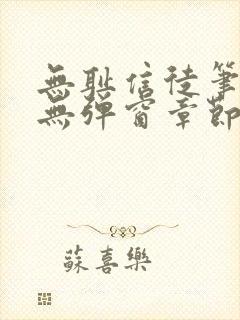 無耻信徒筆
無彈窗章節
蘇喜樂